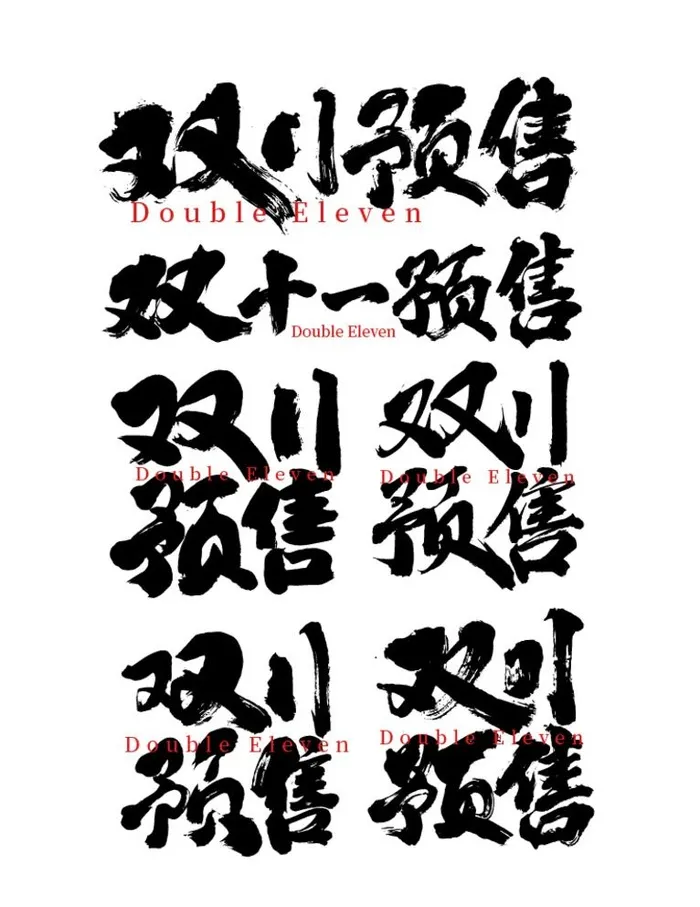 双11预售
Double Eleven
双十一预售
Double Eleven
双11
Double Eleven
预售
双11
Double Eleven
预售
双11
Double Eleven
预售
双11
Double Eleven
预售